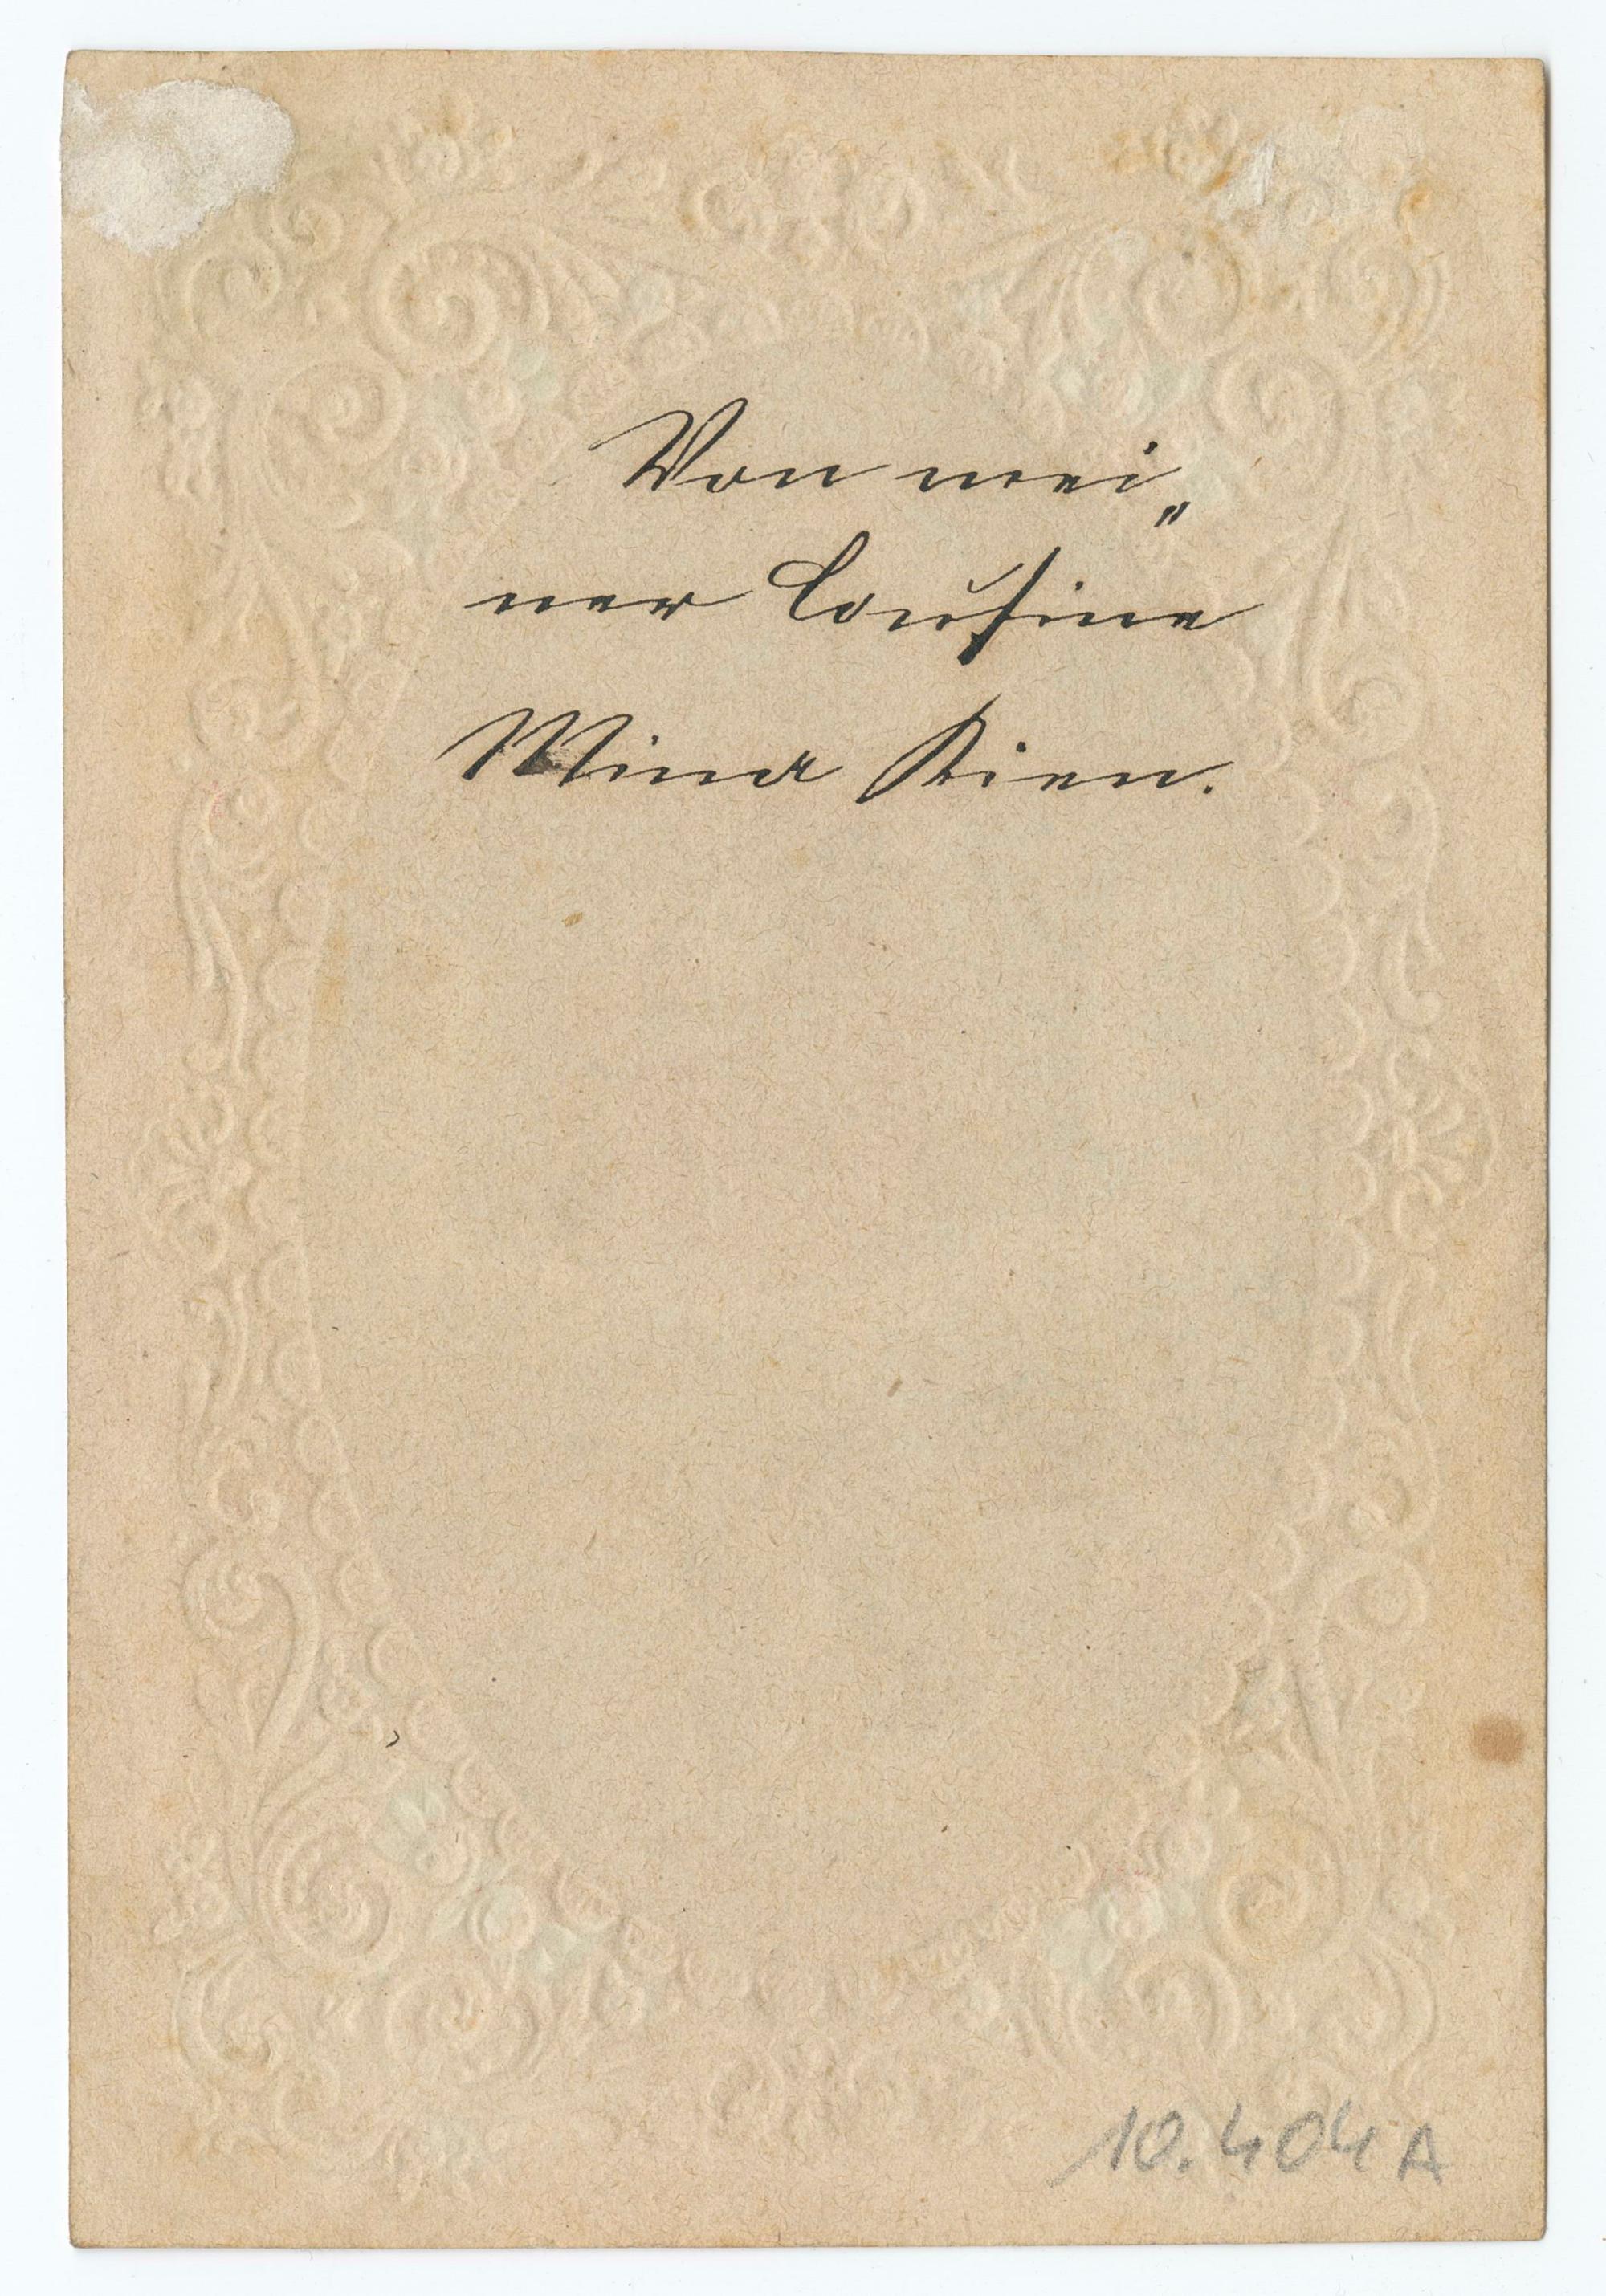 Von mei„
ner Cousine
Mina
10.404A